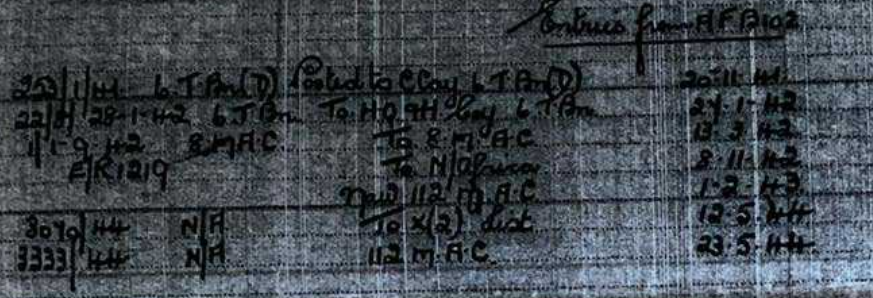 Entries from AFB102
253/1/41 6.T.Bn(D) Posted to C Coy. 6.T.Bn(D) 20-11-41.
22/41 28-1-42 6.T.Bn. To HQ Coy 6.T.Bn 24-1-42
1/1-9-42 8.M.A.C. To 8.M.A.C 13-3-42
E/R1219 To N/Africa 8-11-42
now 112 M.A.C. 1-2-43.
3070/44 N/A To X(2) list 12-5-44
3333/44 N/A 112 M.A.C. 23-5-44